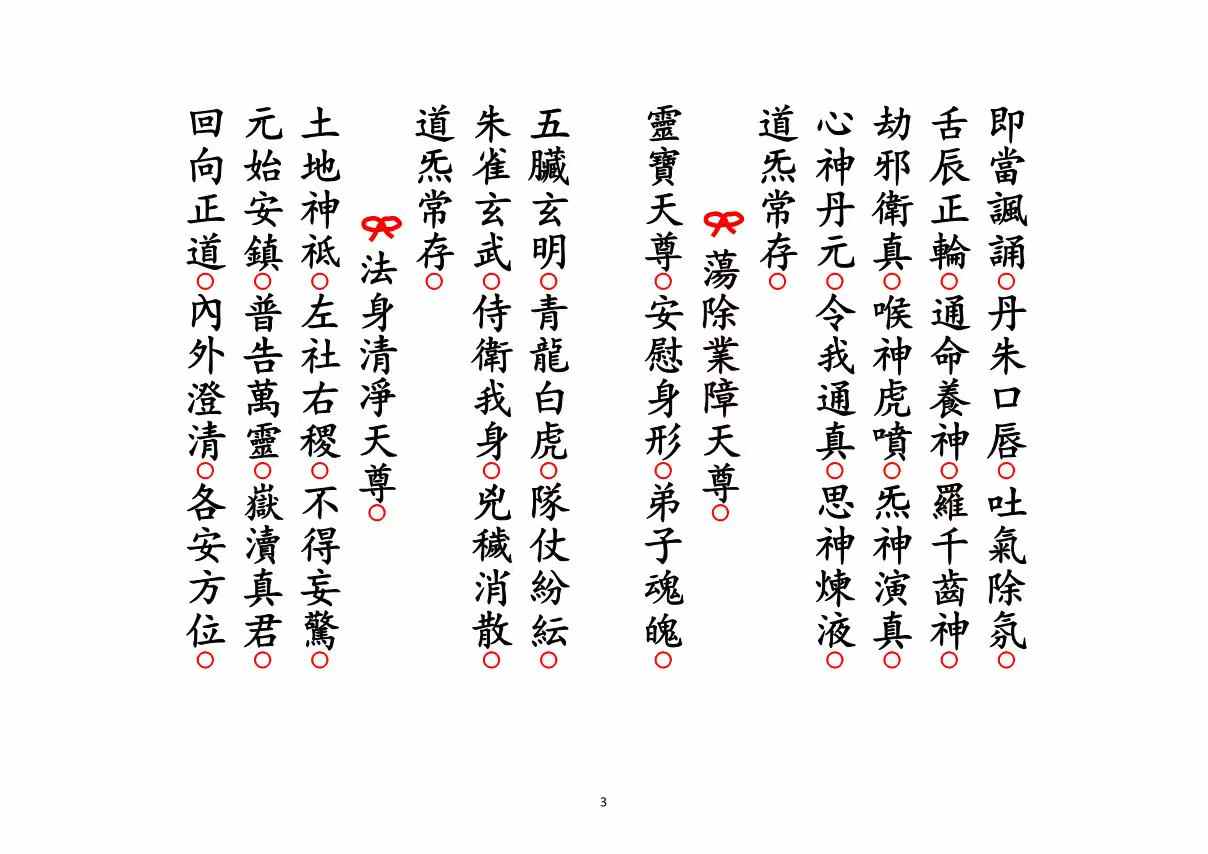 即當諷誦○丹朱口唇○吐氣除氛○
舌辰正輪○通命養神○羅千齒神○
劫邪衛真○喉神虎噴○炁神演真○
心神丹元○令我通真○思神煉液○
道炁常存○
蕩除業障天尊○
靈寶天尊○安慰身形○弟子魂魄○
五臟玄明○青龍白虎○隊仗紛紜○
朱雀玄武○侍衛我身○兇穢消散○
道炁常存○
法身清凈天尊○
土地神祗○左社右稷○不得妄驚○
元始安鎮○普告萬靈○嶽瀆真君○
回向正道○內外澄清○各安方位○
3